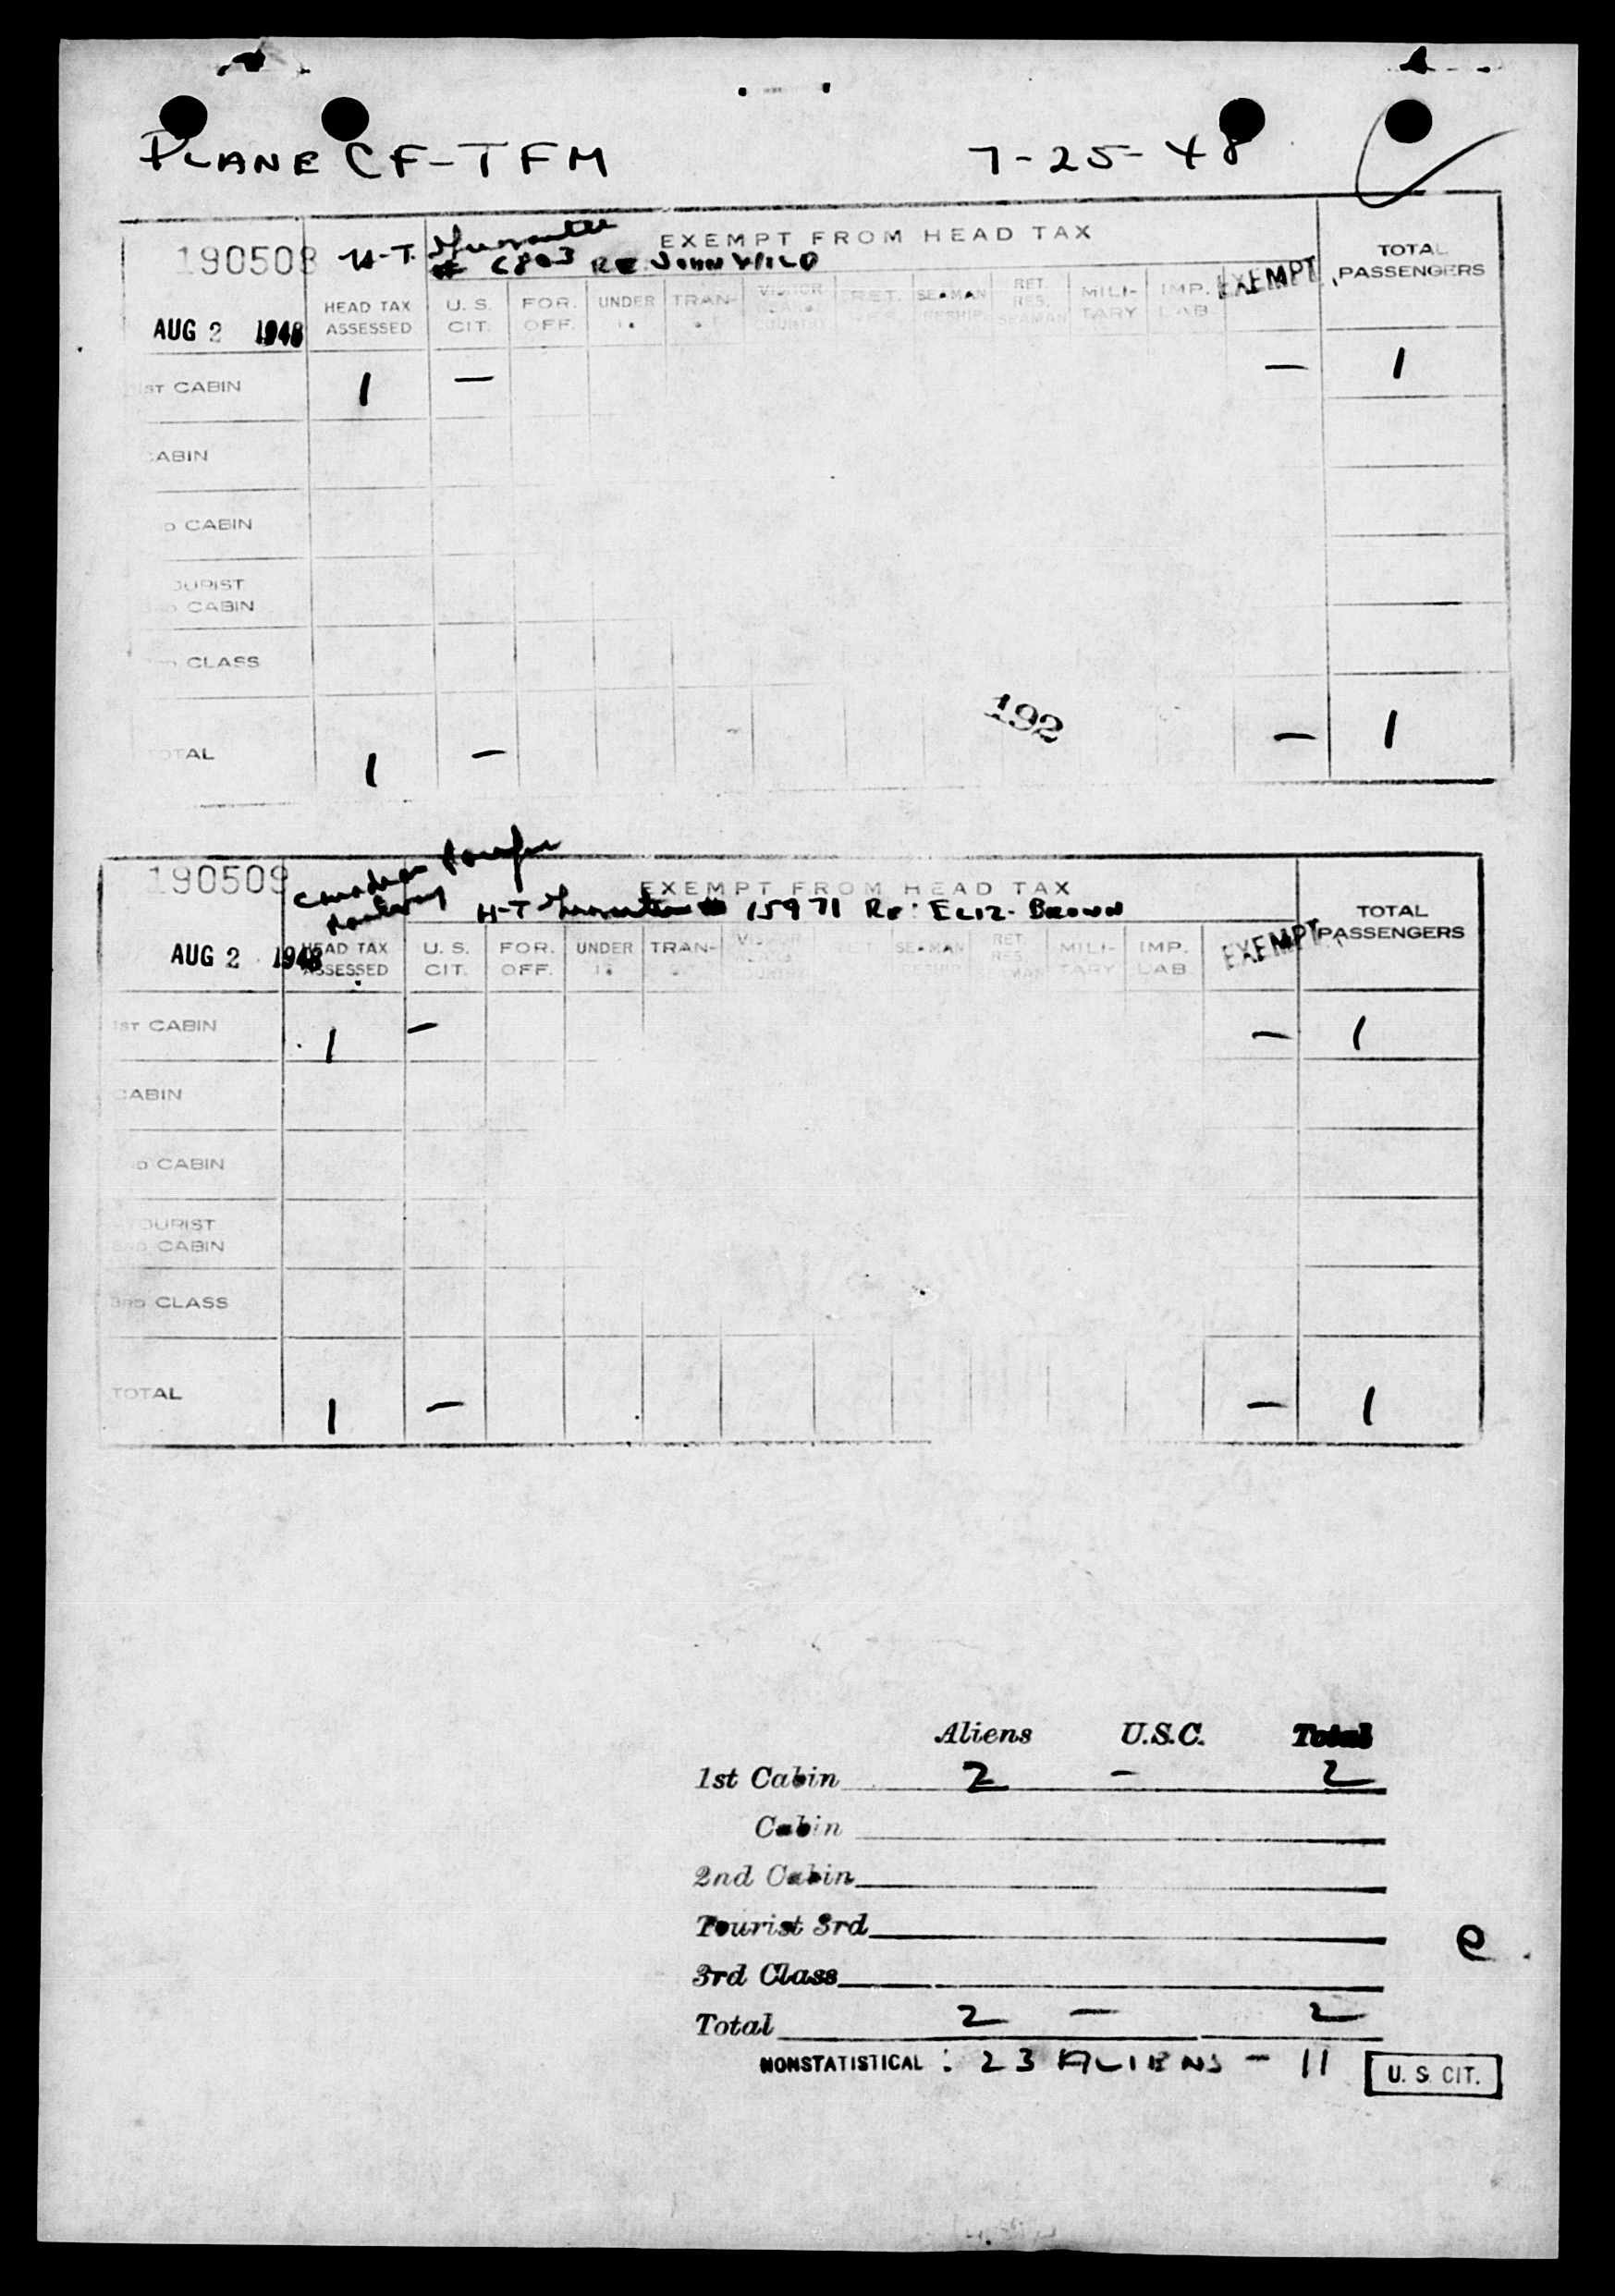 PLANE CF-TFM 7-25-48
190508 H-T. Guarantee EXEMPT FROM HEAD TAX
# C803 RE JOHN WILD
TOTAL PASSENGERS
EXEMPT
HEAD TAX ASSESSED U. S. CIT. FOR. OFF. UNDER TRAN- VISITOR COUNTRY RET. SEAMAN RET. RES. SEAMAN MILI- TARY IMP. LAB
AUG 2 1948
ST CABIN 1 – – 1
CABIN
D CABIN
OURIST
CABIN
CLASS
192
OTAL 1 – – 1
190509 Canadian Pacific
Railway
EXEMPT FROM HEAD TAX
H-T Guarantee # 15971 RE: ELIZ. BROWN
TOTAL PASSENGERS
EXEMPT
AUG 2 1948
HEAD TAX ASSESSED U. S. CIT. FOR. OFF. UNDER TRAN- SEAMAN RET. RES. MILI- TARY IMP. LAB
1ST CABIN 1 – – 1
CABIN
D CABIN
TOURIST
3RD CABIN
3RD CLASS
TOTAL 1 – – 1
Aliens U.S.C. Total
1st Cabin 2 – 2
Cabin
2nd Cabin
Tourist 3rd
e
3rd Class
Total 2 – 2
NONSTATISTICAL : 23 ALIENS – 11 U. S. CIT.